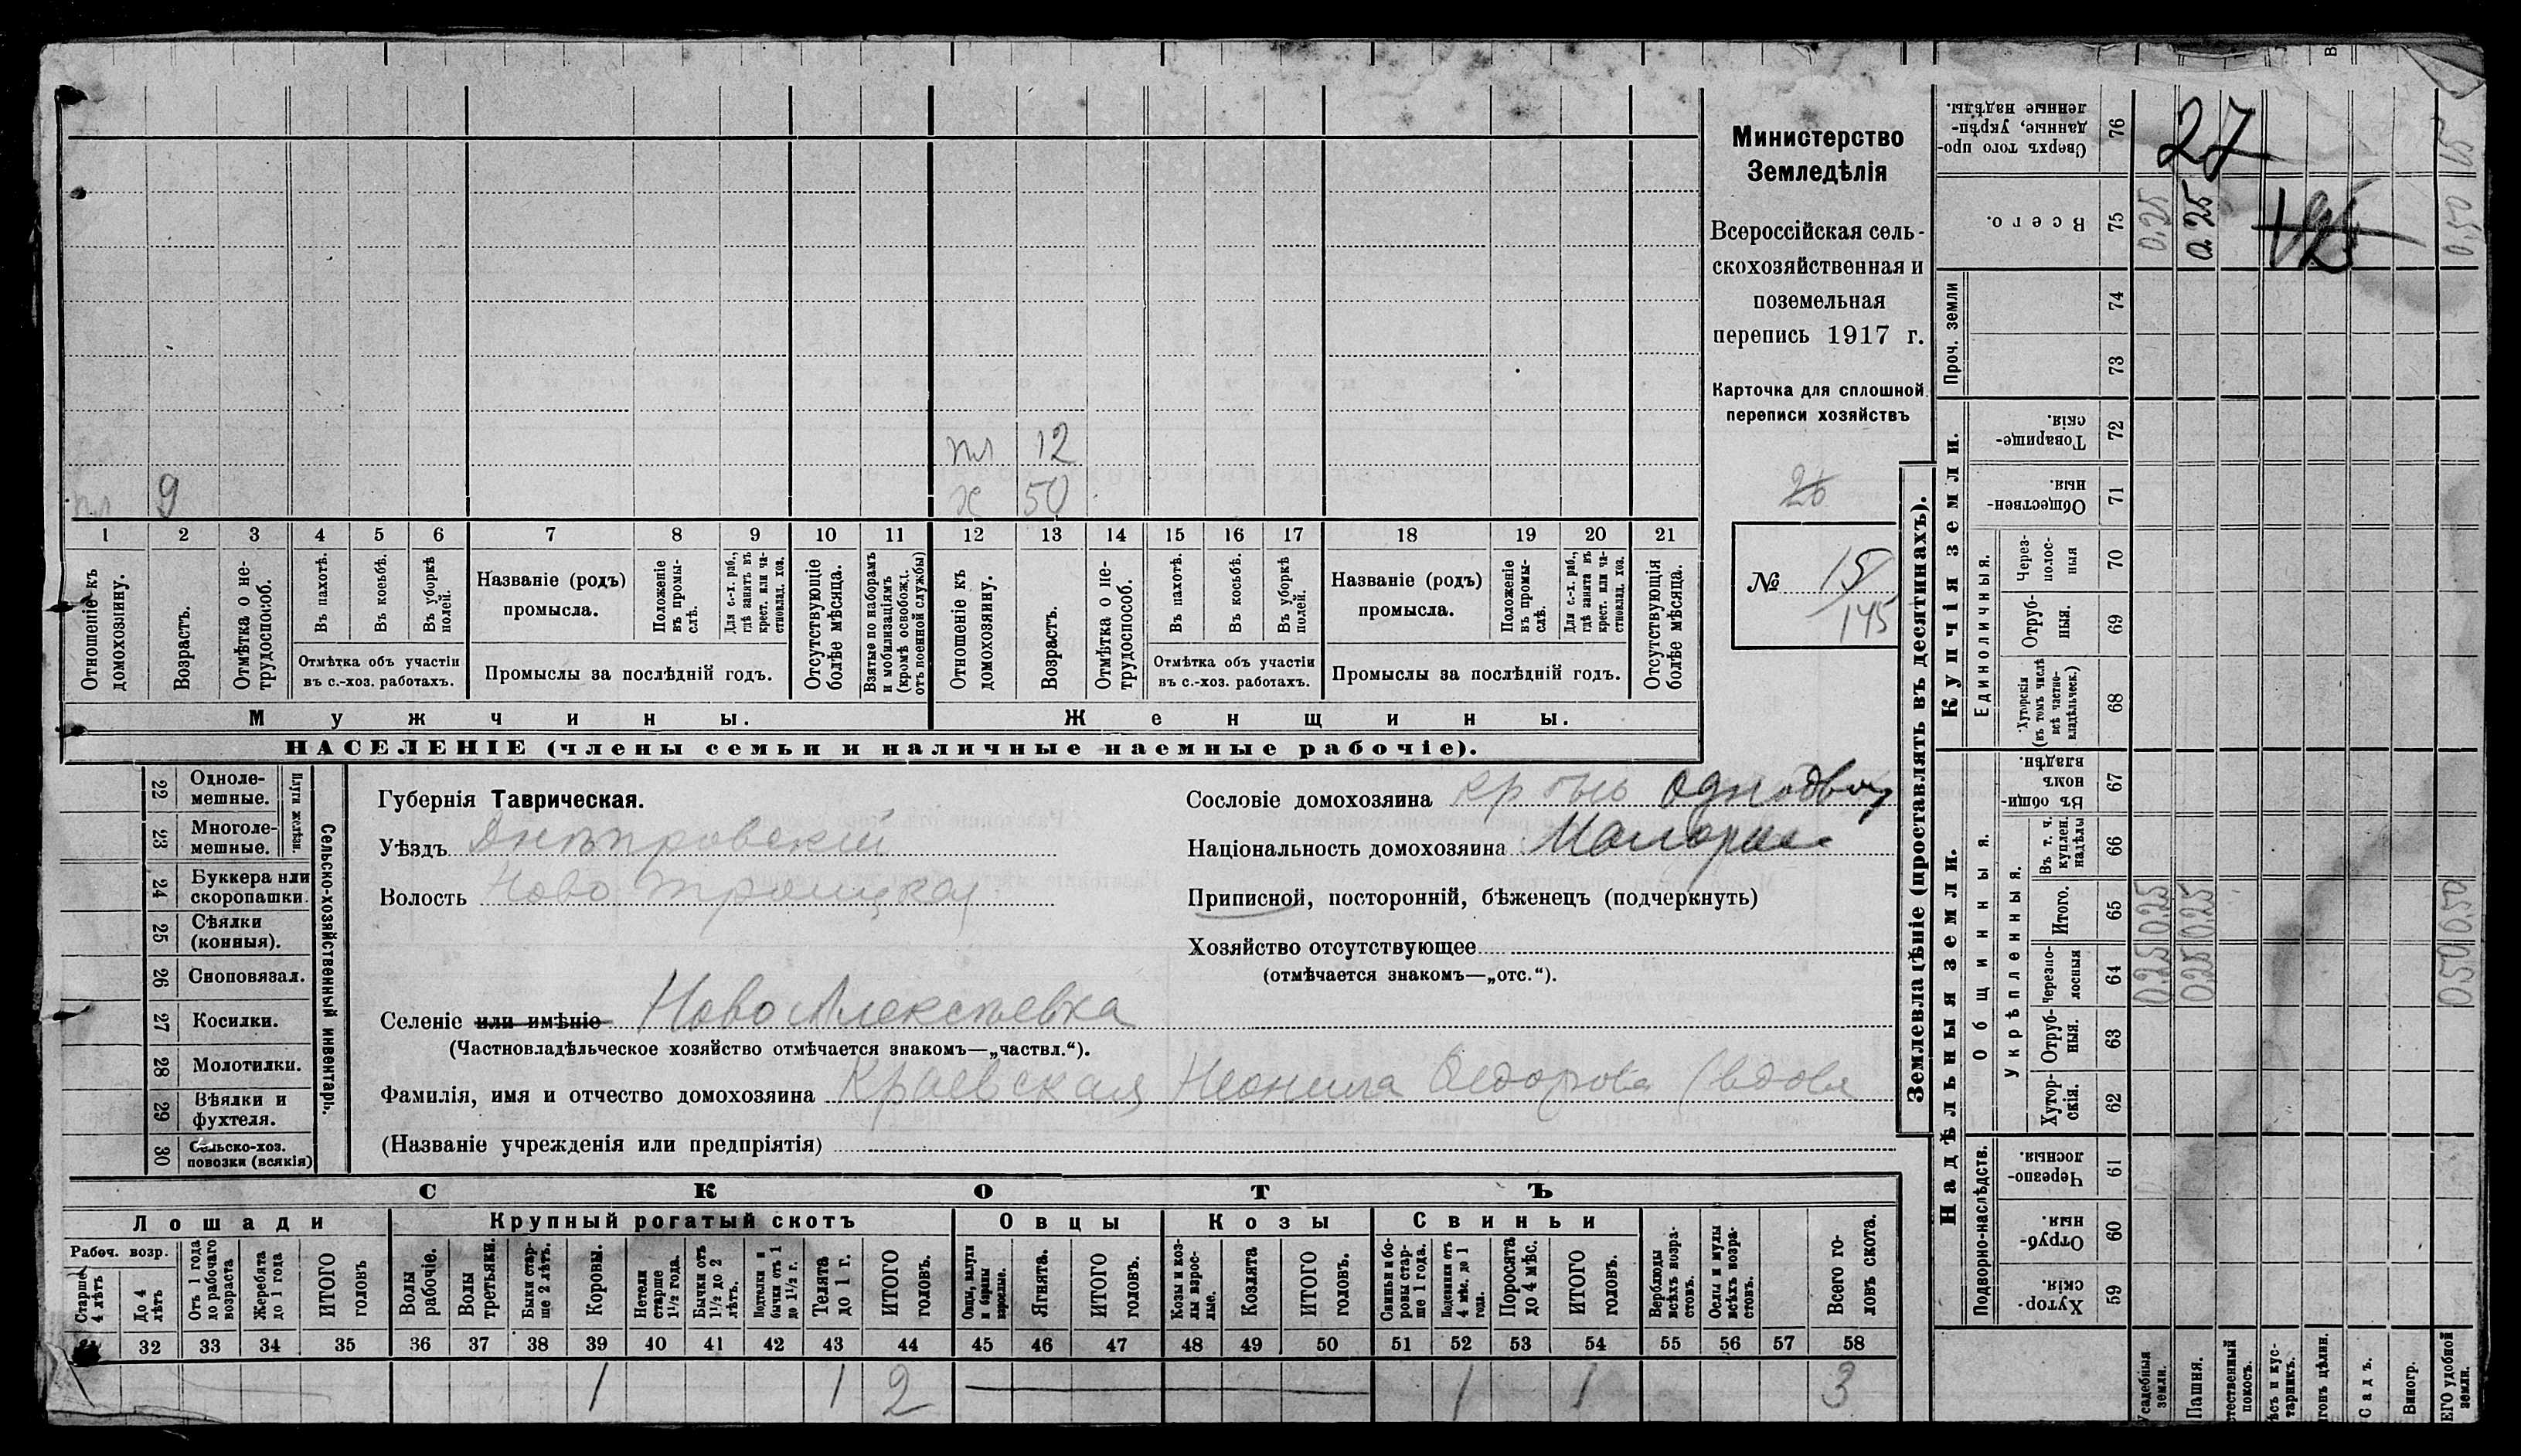 Министерство
Земледѣлія
Всероссійская сель-
скохозяйственная и
поземельная
перепись 1917 г.
Карточка для сплошной
переписи хозяйствъ
26
№ 15/145
пл 12
пл 9
ж 50
1 2 3 4 5 6 7 8 9 10 11 12 13 14 15 16 17 18 19 20 21
Отношеніе къ домохозяину.
Возрастъ.
Отмѣтка о не-трудоспособ.
Въ пахотѣ.
Въ косьбѣ.
Въ уборкѣ полей.
Отмѣтка объ участіи въ с.-хоз. работахъ.
Названіе (родъ) промысла.
Положеніе въ промы-слѣ.
Для с.-х. раб., гдѣ занятъ въ крест. или ча-стновлад. хоз.
Промыслы за послѣдній годъ.
Отсутствующіе болѣе мѣсяца.
Взятые по наборамъ и мобилизаціямъ (кромѣ освобожд. отъ военной службы)
Отношеніе къ домохозяину.
Возрастъ.
Отмѣтка о не-трудоспособ.
Въ пахотѣ.
Въ косьбѣ.
Въ уборкѣ полей.
Отмѣтка объ участіи въ с.-хоз. работахъ.
Названіе (родъ) промысла.
Положеніе въ промы-слѣ.
Для с.-х. раб., гдѣ занята въ крест. или ча-стновлад. хоз.
Промыслы за послѣдній годъ.
Отсутствующія болѣе мѣсяца.
Мужчины. Женщины.
НАСЕЛЕНІЕ (члены семьи и наличные наемные рабочіе).
22 Одноле-мешные.
23 Многоле-мешные.
Плуги желѣзн.
24 Буккера или скоропашки.
25 Сѣялки (конныя).
26 Сноповязал.
27 Косилки.
28 Молотилки.
29 Вѣялки и фухтеля.
30 Сельско-хоз. повозки (всякія)
Сельско-хозяйственный инвентарь.
Губернія Таврическая.
Уѣздъ Днѣпровскій
Волость Ново Троицкая
Сословіе домохозяина
Національность домохозяина Малорос
Приписной, посторонній, бѣженецъ (подчеркнуть)
Хозяйство отсутствующее
(отмѣчается знакомъ—„отс.“).
Селеніе или имѣніе Ново Алексѣевка
(Частновладѣльческое хозяйство отмѣчается знакомъ—„частвл.“).
Фамилія, имя и отчество домохозяина Краевская Неонила Федорова (вдова
(Названіе учрежденія или предпріятія)
СКОТЪ
Лошади Крупный рогатый скотъ Овцы Козы Свиньи
Рабоч. возр.
Старше 4 лѣтъ
До 4 лѣтъ
Отъ 1 года до рабочаго возраста
Жеребята до 1 года
ИТОГО головъ
Волы рабочіе.
Волы третьяки.
Быки стар-ше 2 лѣтъ.
Коровы.
Нетели старше 1½ года.
Бычки отъ 1½ до 2 лѣтъ.
Подтелки и бычки отъ 1 до 1½ г.
Телята до 1 г.
ИТОГО головъ.
Овцы, валухи и бараны взрослые.
Ягнята.
ИТОГО головъ.
Козы и коз-лы взрос-лые.
Козлята
ИТОГО головъ.
Свиньи и бо-ровы стар-ше 1 года.
Подсвинки отъ 4 мѣс. до 1 года.
Поросята до 4 мѣс.
ИТОГО головъ.
Верблюды всѣхъ возра-стовъ.
Ослы и мулы всѣхъ возра-стовъ.
Всего го-ловъ скота.
32 33 34 35 36 37 38 39 40 41 42 43 44 45 46 47 48 49 50 51 52 53 54 55 56 57 58
1 1 2 1 1 3
Землевладѣніе (проставлять въ десятинахъ).
Купчія земли.
Надѣльныя земли.
Сверхъ того про-данные, укрѣп-ленные надѣлы. 76
27
Всего. 75 0.25 0.25 0.50
Проч. земли 74 73
Товарище-скія. 72
Обществен-ныя. 71
Единоличныя.
Через-полос-ныя 70
Отруб-ныя. 69
Хуторскія (въ томъ числѣ всѣ частно-владѣльческ.) 68
Общинныя.
Въ общин-номъ владѣн. 67
Укрѣпленныя.
Въ т. ч. куплен. надѣлы 66
Итого. 65 0.25 0.25 0.50
Черезпо-лосныя 64 0.25 0.25 0.50
Отруб-ныя. 63
Хутор-скія. 62
Подворно-наслѣдств.
Черезпо-лосныя. 61
Отруб-ныя. 60
Хутор-скія. 59
Усадебныя земли.
Пашня.
тественный покосъ.
ѣсъ и кус-тарникъ.
гонъ цѣлин.
Садъ.
Виногр.
ЕГО удобной земли.